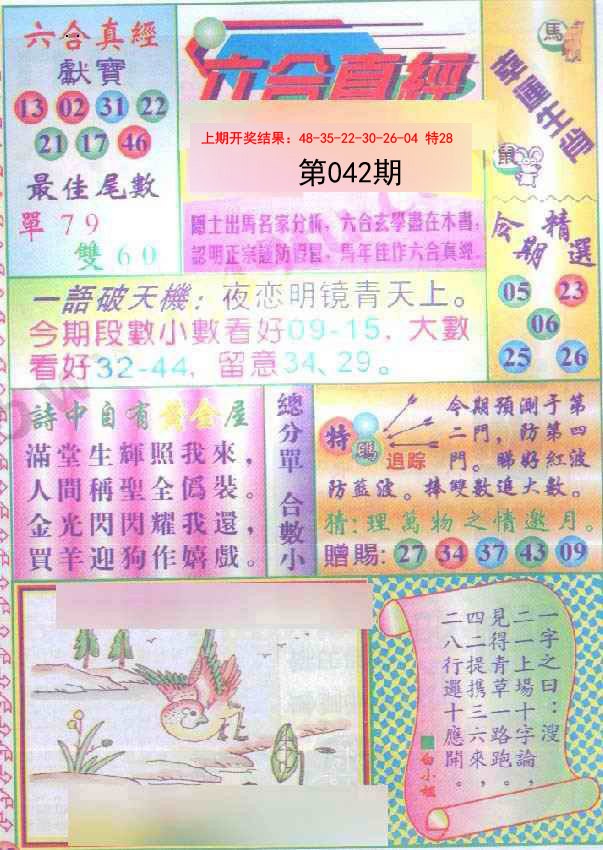 六合真經
獻寶
13 02 31 22
21 17 46
最佳尾數
單79
雙60
六合真經
上期开奖结果: 48-35-22-30-26-04 特28
第042期
隱士出馬名家分析，六合玄學盡在本書，
認明正宗謹防假冒，馬年佳作六合真經。
馬
幸運生肖
鼠
今期精選
05 23
06
25 26
一語破天機：夜恋明镜青天上。
今期段數小數看好09-15，大數
看好32-44，留意34、29。
詩中自有黃金屋
滿堂生輝照我來，
人間稱聖全僞裝。
金光閃閃耀我還，
買羊迎狗作嬉戲。
總分單 合數小
特碼
追踪
今期預測于第
二門，防第四
門。睇好紅波
防藍波。捧雙數追大數。
猜:理萬物之情邀月。
贈賜: 27 34 37 43 09
一字之曰：溲
二一上場十字論，
見得青草一路跑。
四二提携三六來，
二八行運十應開。
白小姐